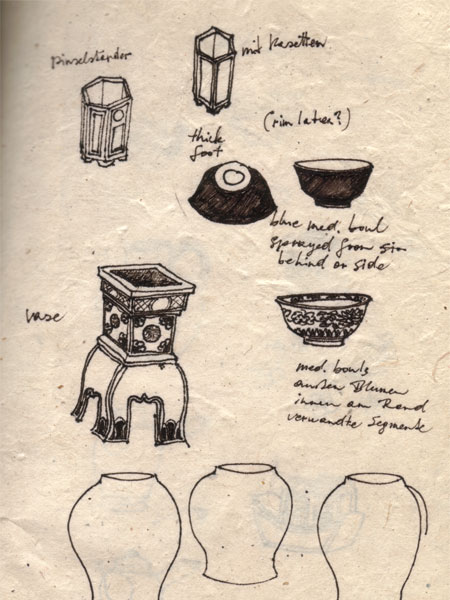 Pinselständer
mit Kasetten
(rim later?)
thick
foot
blue med. bowl
sprayed from
behind or side
vase
med. bowls
außen Blumen
innen am Rand
verwandte Segmente